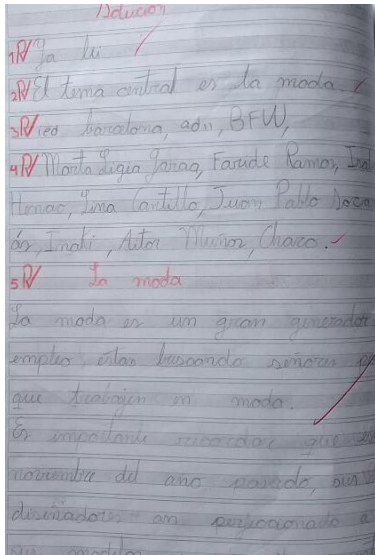 Solución
1R/ Ya lui
2R/ El tema central es la moda.
3R/ ied barcelona, adn, BFW,
4R/ Marta Ligia Faride Ramos,
Henao, Lina Cantillo, Juan Pablo
Iñaki, Aitor Muñoz, Charo.
5R/ La moda
La moda es un gran generador
empleo, están buscando señores
que trabajen en moda.
Es importante recordar que
noviembre del año pasado, sus
diseñadores an perfeccionado a
sus modelos